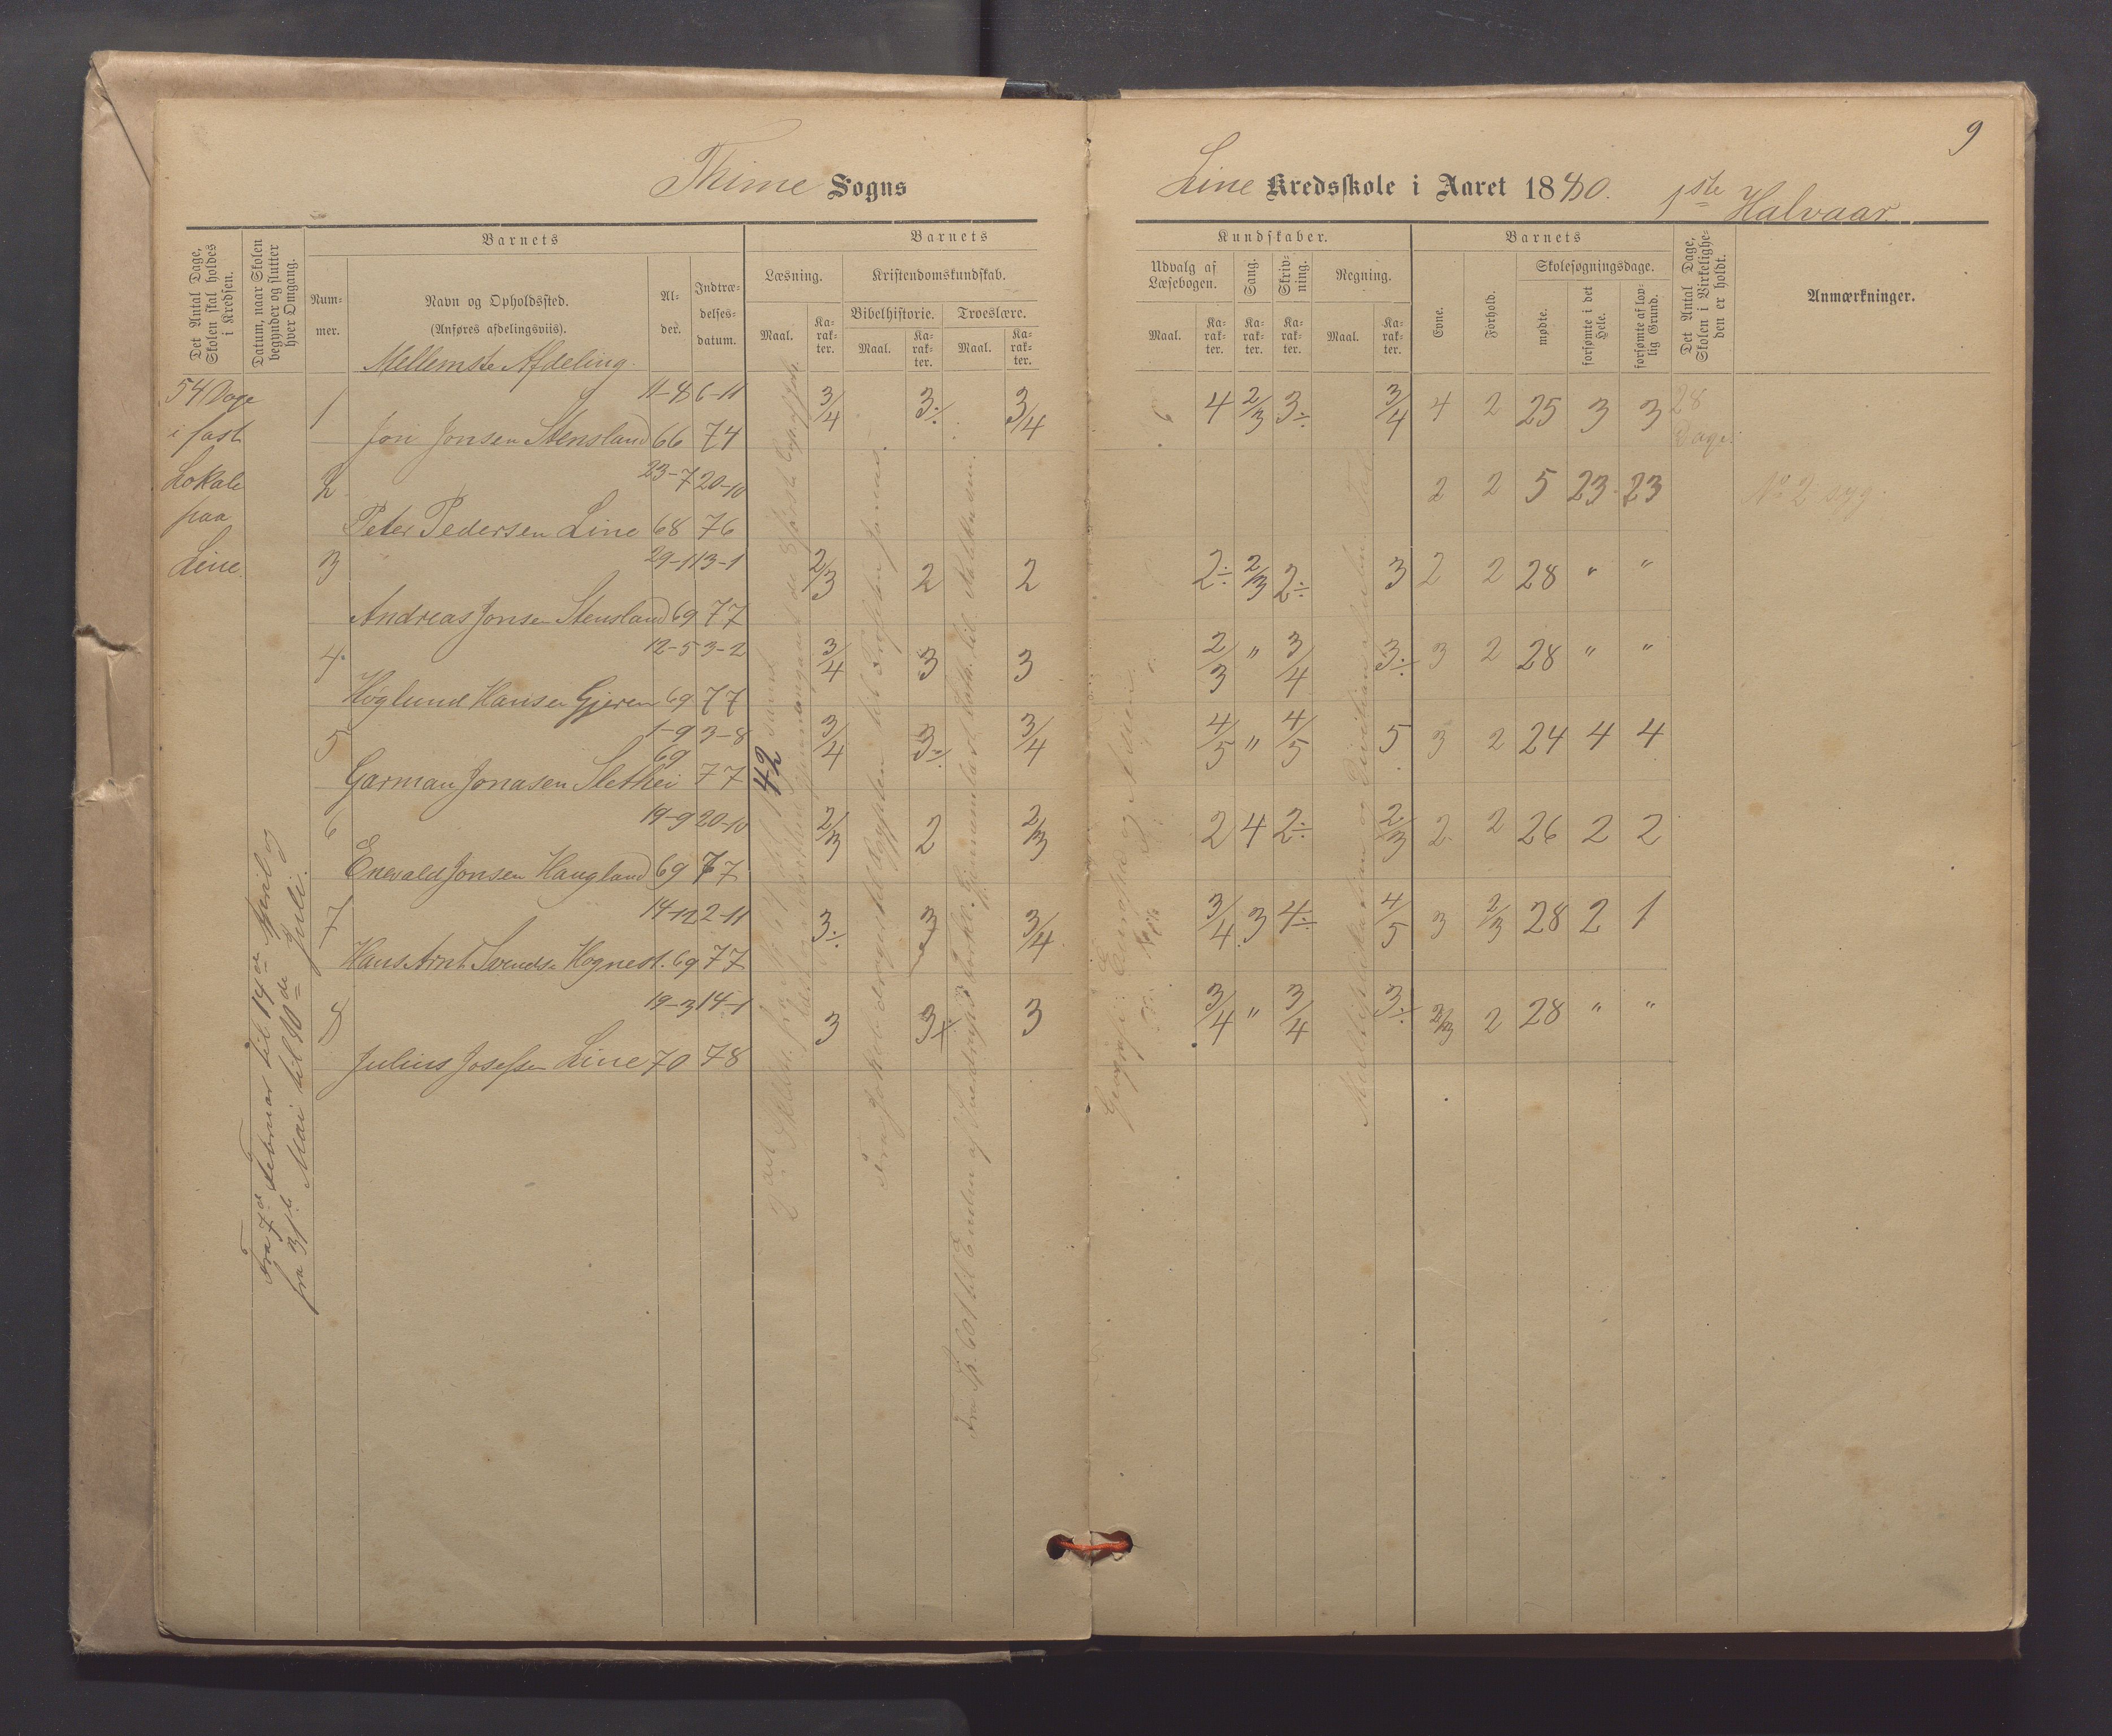 9
Thime Sogns
Line Kredsskole i Aaret 1880. 1ste Halvaar
Det Antal Dage, Skolen skal holdes i Kredsen.
Datum, naar Skolen begynder og slutter hver Omgang.
Barnets
Num-mer.
Navn og Opholdssted.
(Anføres afdelingsviis).
Al-der.
Indtræ-delses-datum.
Barnets
Læsning.
Maal.
Ka-rak-ter.
Kristendomskundskab.
Bibelhistorie.
Maal.
Ka-rak-ter.
Troeslære.
Maal.
Ka-rak-ter.
Kundskaber.
Udvalg af Læsebogen.
Maal.
Ka-rak-ter.
Sang.
Ka-rak-ter.
Skriv-ning.
Ka-rak-ter.
Regning.
Maal.
Ka-rak-ter.
Barnets
Evne.
Forhold.
Skolesøgningsdage.
mødte.
forsømte i det Hele.
forsømte af lov-lig Grund.
Det Antal Dage, Skolen i Virkelighe-den er holdt.
Anmærkninger.
Mellemste Afdeling.
54 Dage
i fast
Lokale
paa
Line.
Fra 7de Februar til 14de April og
fra 31te Mai til 10de Juli.
1 Jon Jonsen Stensland 11-8 66 6-11 74 3/4 3÷ 3/4 4 2/3 3÷ 3/4 4 2 25 3 3 28 Dage.
2 Peter Pedersen Line 23-7 68 20-10 76 2 2 5 23 23 No 2 syg.
3 Andreas Jonsen Stensland 29-1 69 13-1 77 2/3 2 2 2÷ 2/3 2÷ 3 2 2 28 " "
4. Høglund Hansen Gjeren 12-5 69 3-2 77 3/4 3 3 2/3 " 3/4 3÷ 3 2 28 " "
5 Garman Jonasen Slethei 1-9 69 3-8 77 3/4 3÷ 3/4 4/5 " 4/5 5 3 2 24 4 4
6 Enevald Jonsen Haugland 19-9 69 20-10 77 2/3 2 2/3 2 4 2÷ 2/3 2 2 26 2 2
7 Hans Arnt Svends. Hognest. 14-12 69 2-11 77 3÷ 3 3/4 3/4 3 4÷ 4/5 3 2/3 28 2 1
8 Julius Josefsen Line 19-3 70 14-1 78 3 3+ 3 3/4 " 3/4 3÷ 2/3 2 28 " "
42
Geografi: Europa og Asien.